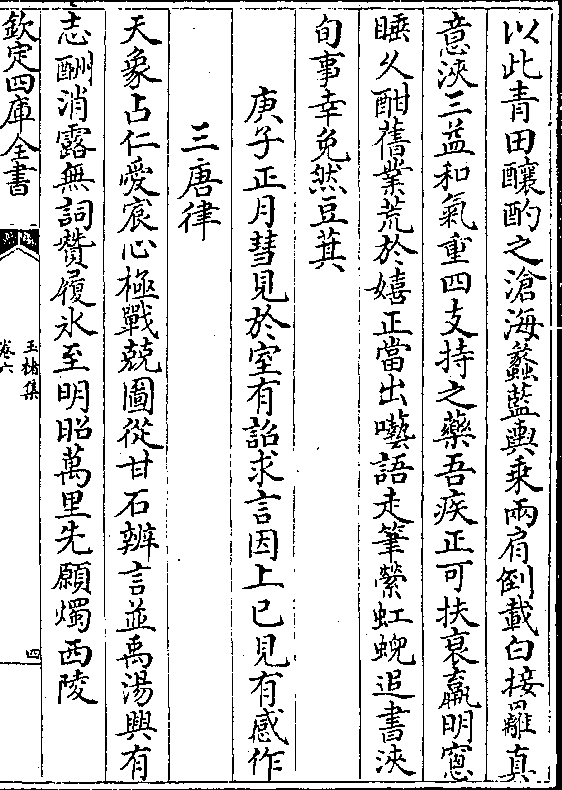 以此青田釀酌之滄海蠡藍輿乗兩肩倒載白接羅真
意浹三益和氣重四支持之藥吾疾正可扶衰羸明窻
睡久酣舊業荒於嬉正當出囈語走筆縈虹蜺追書浹
旬事幸免然豆萁
庚子正月彗見於室有詔求言因上已見有感作
三唐律
天象占仁愛宸心極戰兢圖從甘石辨言並禹湯興有
志酬消露無詞贊履氷至明昭萬里先願燭西陵
欽定四庫全書
玉楮集
卷六
四